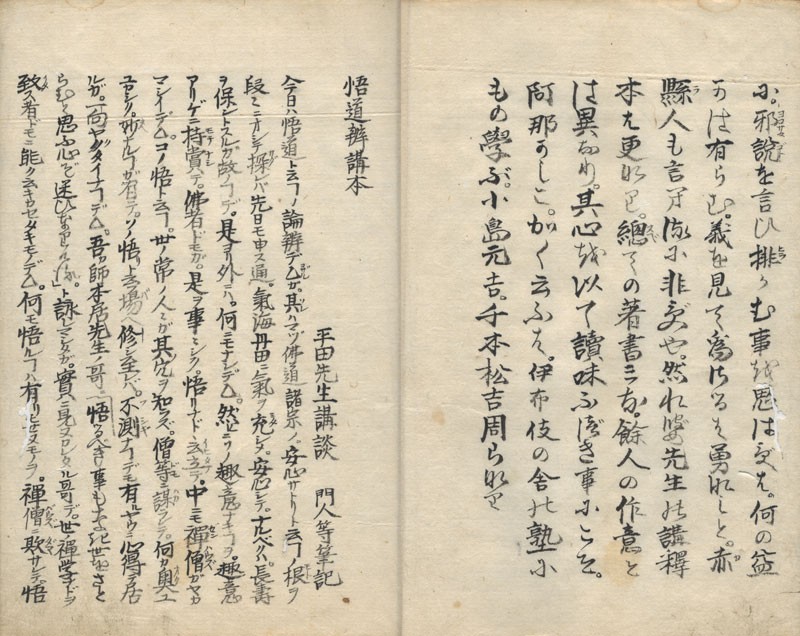 に。邪説を言ひ排かむ事を思はずは。何の益
かは有らむ。義を見て為ざるは勇なしと。赤
縣人も言ひ流に非ずや。然れば先生の講釋
本は更なり。總ての著書みな。餘人の作意と
は異なり。其心を以て讀味ふべき事にこそ。
阿那かしこ。かく云ふは。伊布伎の舎の塾に
もの學ぶ。小島元吉。千本松吉周らなり
悟道辨講本
平田先生講談 門人等筆記
今日ハ悟道ト云フノ論辨デムガ。其ハマヅ佛道諸宗ノ。安心サトリト云フノ根ヲ
段々ニオシテ探レバ先日モ申ス通。氣海丹田ニ氣ヲ充シメ。安心シテ。ナルベクハ。長壽
ヲ保トスルガ故ノコデ。是ヨリ外ニハ。何ニモナシデム。然ニソノ趣意ナコヲ。趣意
アリゲニ持賞テ。佛者ドモガ。是ヲ事ミシク。悟リナドヽ云立テ。中ニモ禪僧ガヤカ
マシイデム。コノ悟ト云フ。世ノ常ノ人ミガ其究ヲ知ラズ。僧等ニ謀ラレテ。何カ奧ユ
ユカシク。妙ナルコガ有テ。ソノ悟リト云場ヘ修シ至レバ。不測ナコデモ有ルヤウニ心得テ居
ルガ。一向ヤクタイナコデム。吾ガ師本居先生ノ哥ニ悟るべき事もなき世をさと
らむと思ふ心ぞ迷ひなりける。ト詠レマシタガ。實ニ見ヌカレタル哥デ。世ノ禪學ドヲ
致ス者ドモニ能ク云キカセタキモノデム。何モ悟ルコハ有リヤセヌモノヲ。禪僧ニ欺サレテ。悟